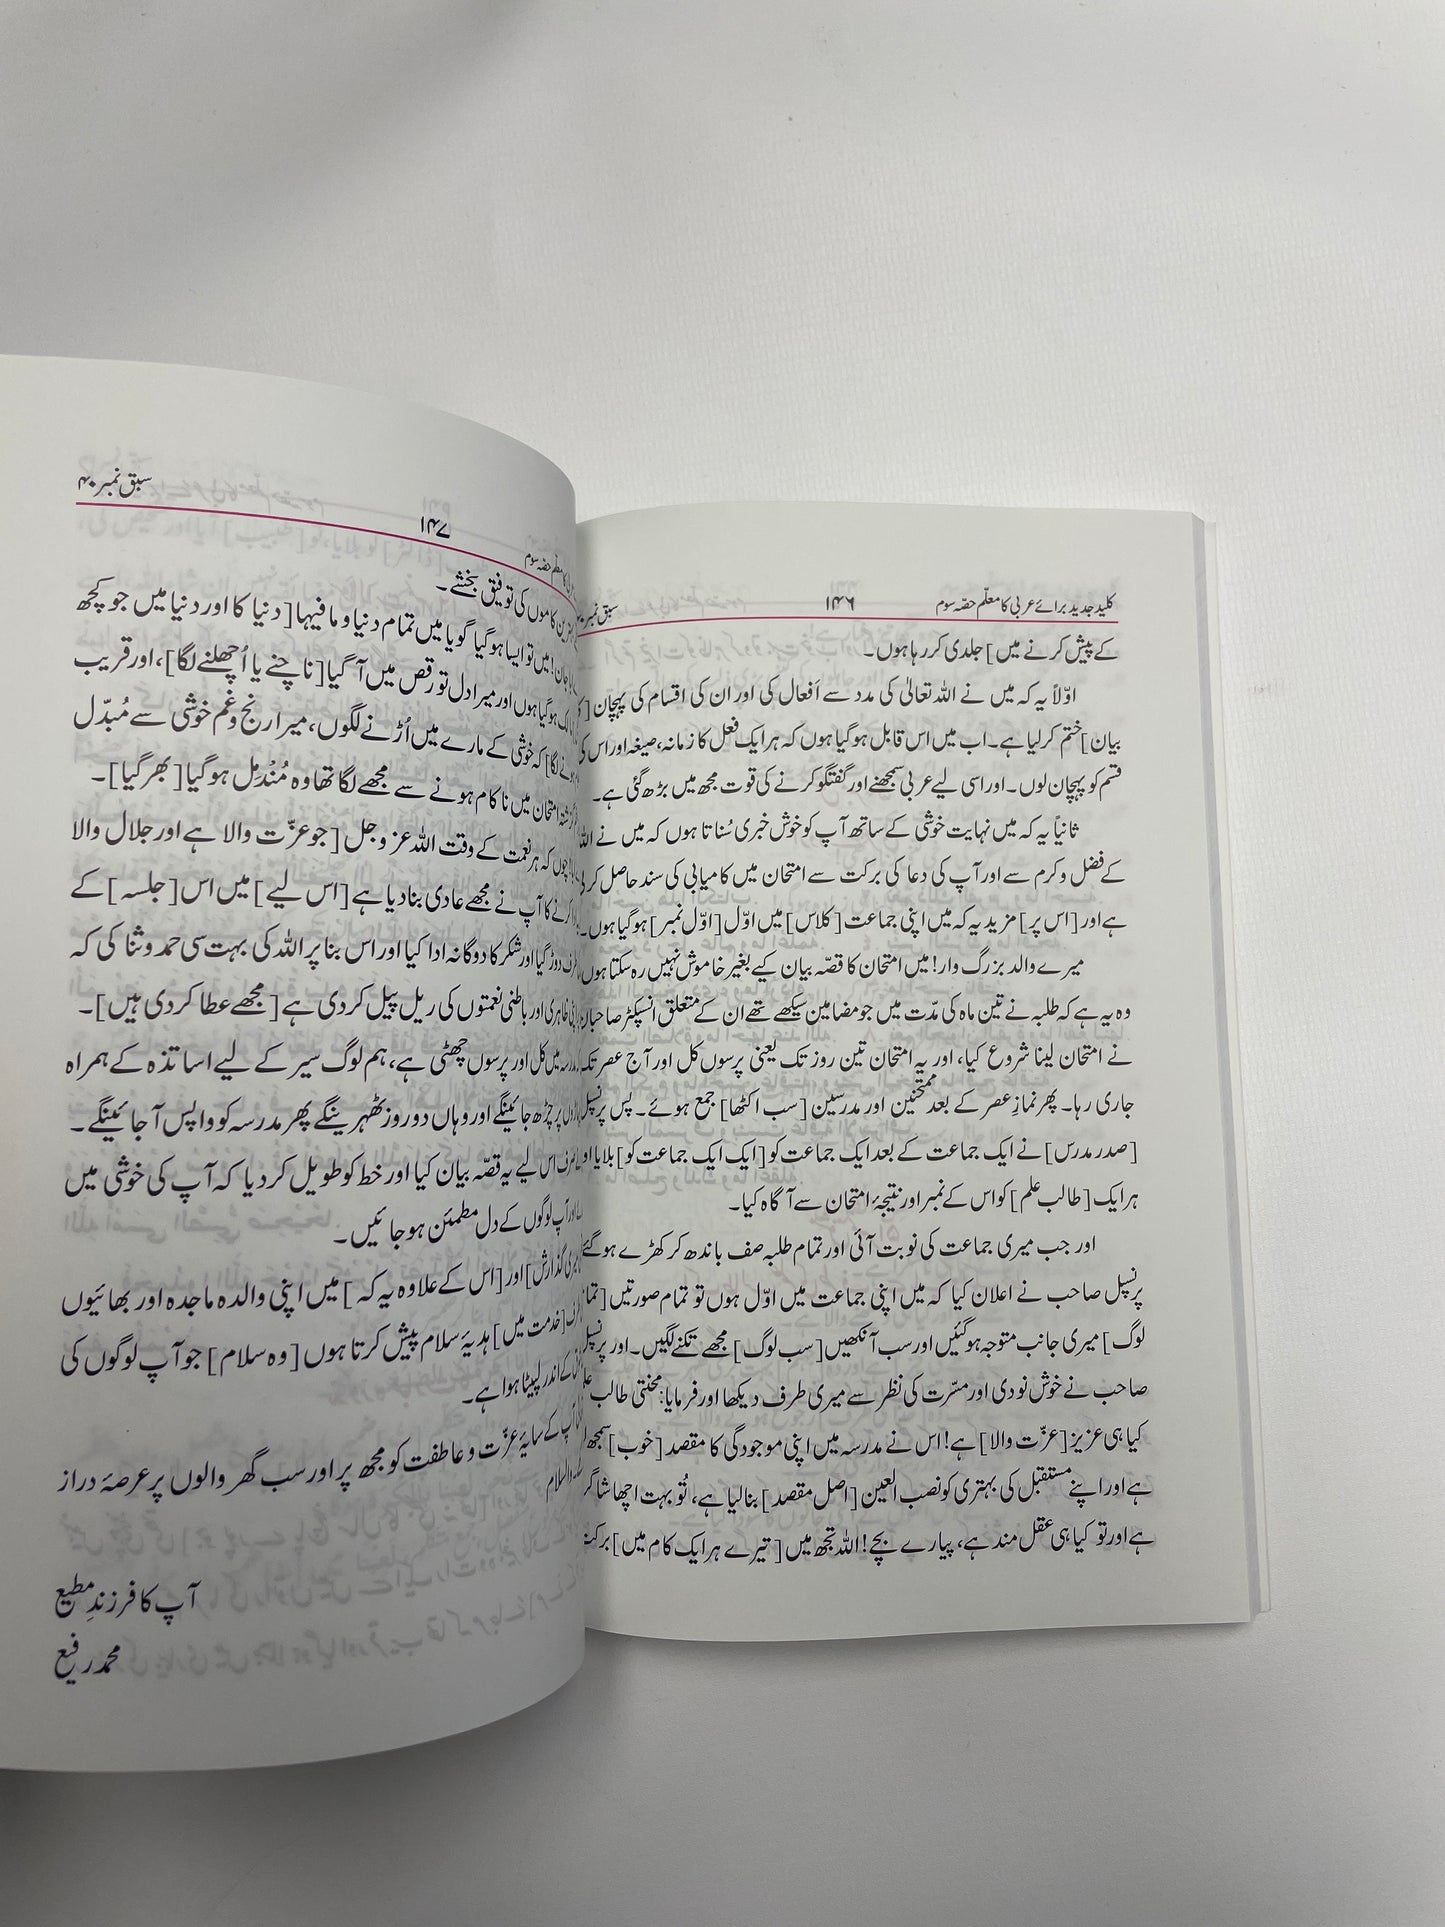 کلید جدید برائے عربی کا معلّم حصّہ سوم ۱۴۶ سبق نمبر
کے پیش کرنے میں] جلدی کر رہا ہوں۔
اوّلاً یہ کہ میں نے اللہ تعالیٰ کی مدد سے اَفعال کی اور ان کی اقسام کی پہچان
بیان] ختم کر لیا ہے۔ اب میں اس قابل ہوگیا ہوں کہ ہر ایک فعل کا زمانہ، صیغہ اور اس کی
قسم کو پہچان لوں۔ اور اسی لیے عربی سمجھنے اور گفتگو کرنے کی قوت مجھ میں بڑھ گئی ہے۔
ثانیاً یہ کہ میں نہایت خوشی کے ساتھ آپ کو خوش خبری سُناتا ہوں کہ میں نے اللہ
کے فضل و کرم سے اور آپ کی دعا کی برکت سے امتحان میں کامیابی کی سند حاصل کر لی
ہے اور [اس پر] مزید یہ کہ میں اپنی جماعت [کلاس] میں اوّل [اوّل نمبر] ہوگیا ہوں۔
میرے والد بزرگ وار! میں امتحان کا قصّہ بیان کیے بغیر خاموش نہیں رہ سکتا ہوں
وہ یہ ہے کہ طلبہ نے تین ماہ کی مدّت میں جو مضامین سیکھے تھے ان کے متعلق انسپکٹر صاحبان
نے امتحان لینا شروع کیا، اور یہ امتحان تین روز تک یعنی پرسوں کل اور آج عصر تک
جاری رہا۔ پھر نمازِ عصر کے بعد ممتحنین اور مدرسین [سب اکٹھا] جمع ہوئے۔ پس پرنسپل
[صدر مدرس] نے ایک جماعت کے بعد ایک جماعت کو [ایک ایک جماعت کو] بلایا اور
ہر ایک [طالب علم] کو اس کے نمبر اور نتیجۂ امتحان سے آگاہ کیا۔
اور جب میری جماعت کی نوبت آئی اور تمام طلبہ صف باندھ کر کھڑے ہوگئے
پرنسپل صاحب نے اعلان کیا کہ میں اپنی جماعت میں اوّل ہوں تو تمام صورتیں [تمام
لوگ] میری جانب متوجہ ہوگئیں اور سب آنکھیں [سب لوگ] مجھے تکنے لگیں۔ اور پرنسپل
صاحب نے خوش نودی اور مسرّت کی نظر سے میری طرف دیکھا اور فرمایا: محنتی طالب علم
کیا ہی عزیز [عزّت والا] ہے! اس نے مدرسہ میں اپنی موجودگی کا مقصد [خوب] سمجھ
ہے اور اپنے مستقبل کی بہتری کو نصب العین [اصل مقصد] بنا لیا ہے، تُو بہت اچھا شاگرد
ہے اور تو کیا ہی عقل مند ہے، پیارے بچے! اللہ تجھ میں [تیرے ہر ایک کام میں] برکت
کا معلّم حصّہ سوم ۱۴۷ سبق نمبر ۴۰
کاموں کی توفیق بخشے۔
جان! میں تو ایسا ہوگیا گویا میں تمام دنیا و مافیہا [دنیا کا اور دنیا میں جو کچھ
ہوگیا ہوں اور میرا دل تو رقص میں آگیا [ناچنے یا اُچھلنے لگا]، اور قریب
کہ خوشی کے مارے میں اُڑنے لگوں، میرا رنج و غم خوشی سے مُبدّل
امتحان میں ناکام ہونے سے مجھے لگا تھا وہ مُندْمِل ہوگیا [بھر گیا]۔
چوں کہ ہر نعمت کے وقت اللہ عزوجل [جو عزّت والا ہے اور جلال والا
کرنے کا آپ نے مجھے عادی بنا دیا ہے [اس لیے] میں اس [جلسہ] کے
دوڑ گیا اور شکر کا دوگانہ ادا کیا اور اس بنا پر اللہ کی بہت سی حمد و ثنا کی کہ
ظاہری اور باطنی نعمتوں کی ریل پیل کر دی ہے [مجھے عطا کر دی ہیں]۔
مدرسہ میں کل اور پرسوں چھٹی ہے، ہم لوگ سیر کے لیے اساتذہ کے ہمراہ
پر چڑھ جائینگے اور وہاں دو روز ٹھہرینگے پھر مدرسہ کو واپس آجائینگے۔
اس لیے یہ قصّہ بیان کیا اور خط کو طویل کر دیا کہ آپ کی خوشی میں
اور آپ لوگوں کے دل مطمئن ہو جائیں۔
گذارش] اور [اس کے علاوہ یہ کہ] میں اپنی والدہ ماجدہ اور بھائیوں
[خدمت میں] ہدیۂ سلام پیش کرتا ہوں [وہ سلام] جو آپ لوگوں کی
کے اندر لپیٹا ہوا ہے۔
آپ کے سایۂ عزّت و عاطفت کو مجھ پر اور سب گھر والوں پر عرصۂ دراز
والسلام
آپ کا فرزندِ مطیع
محمد رفیع